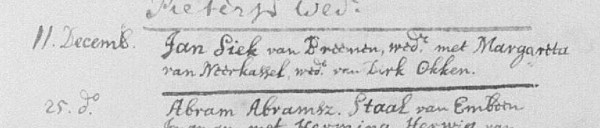 Pieters Wed.
11. Decemb. Jan Siek van Breemen, wedr. met Margareta
van Neerkassel, wede. van Dirk Okken.
25. do. Abram Abramsz. Staal van Embden
met Harmina Herwig van